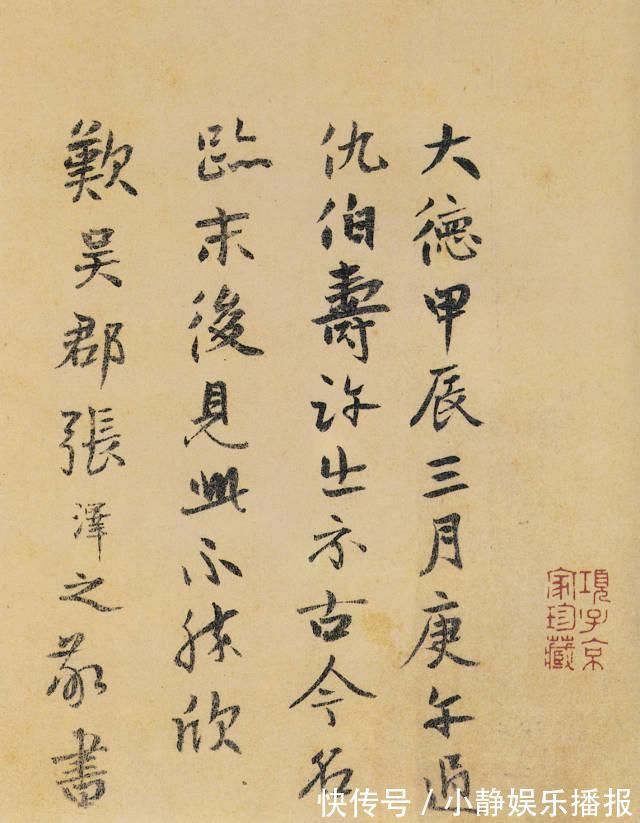 大德甲辰三月庚午過
仇伯壽許出示古今名
蹟末後見此不勝欣
歎吴郡張澤之敬書
項子京
家珍藏
快传号/小静娱乐播报